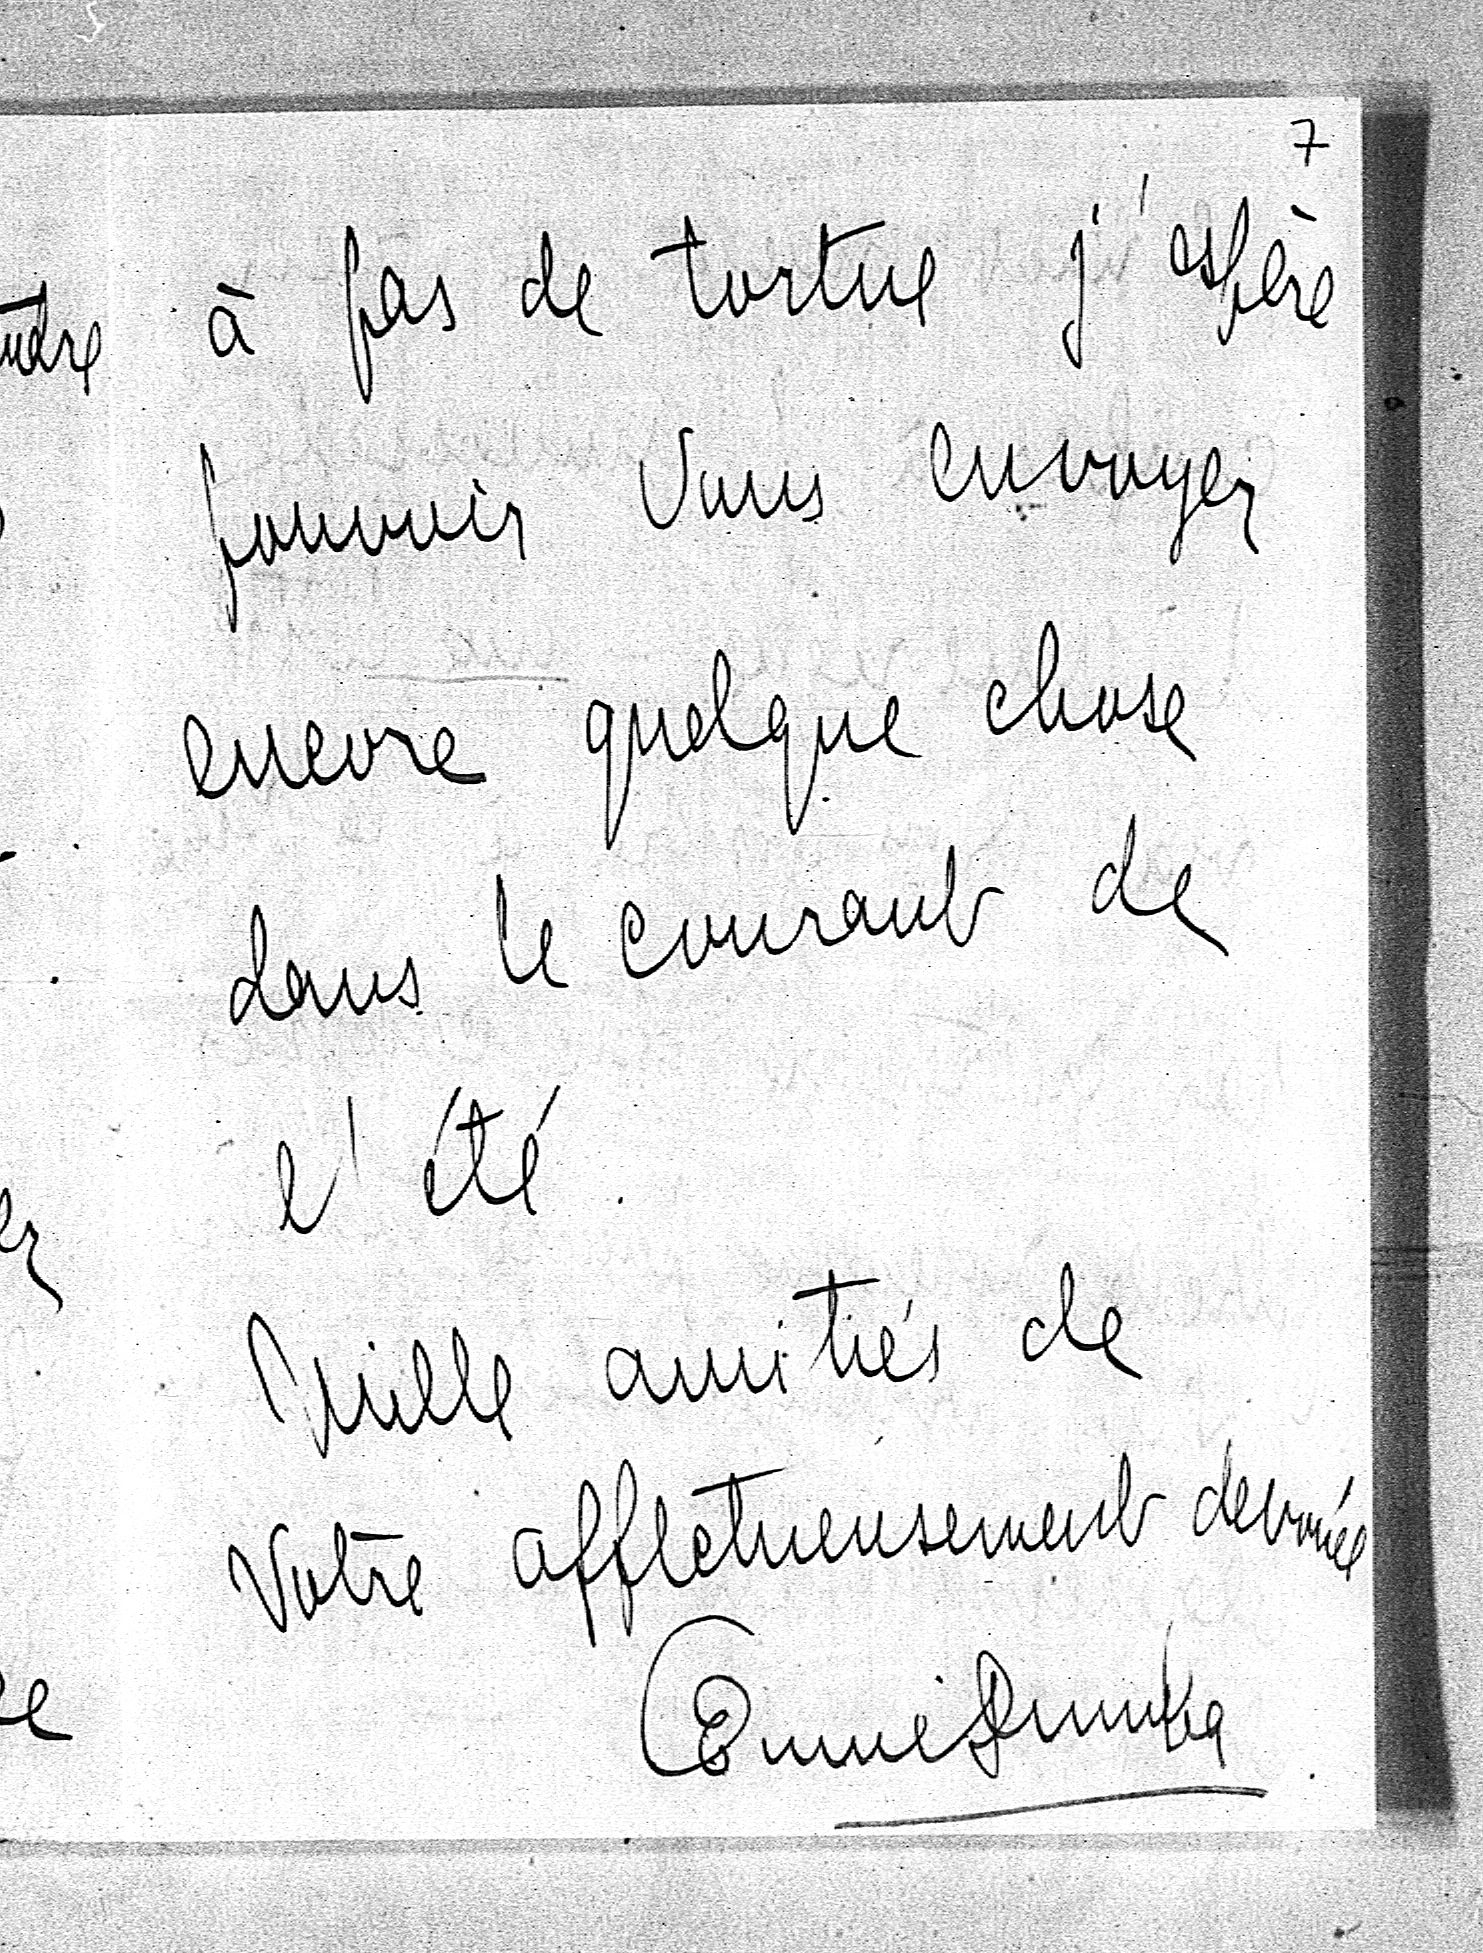 7
à pas de tortue j'espère
pouvoir vous envoyer
encore quelque chose
dans le courant de
l'été.
Mille amitiés de
Votre affectueusement dévouée